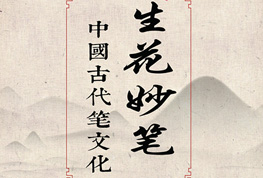 生花妙笔
中國古代笔文化